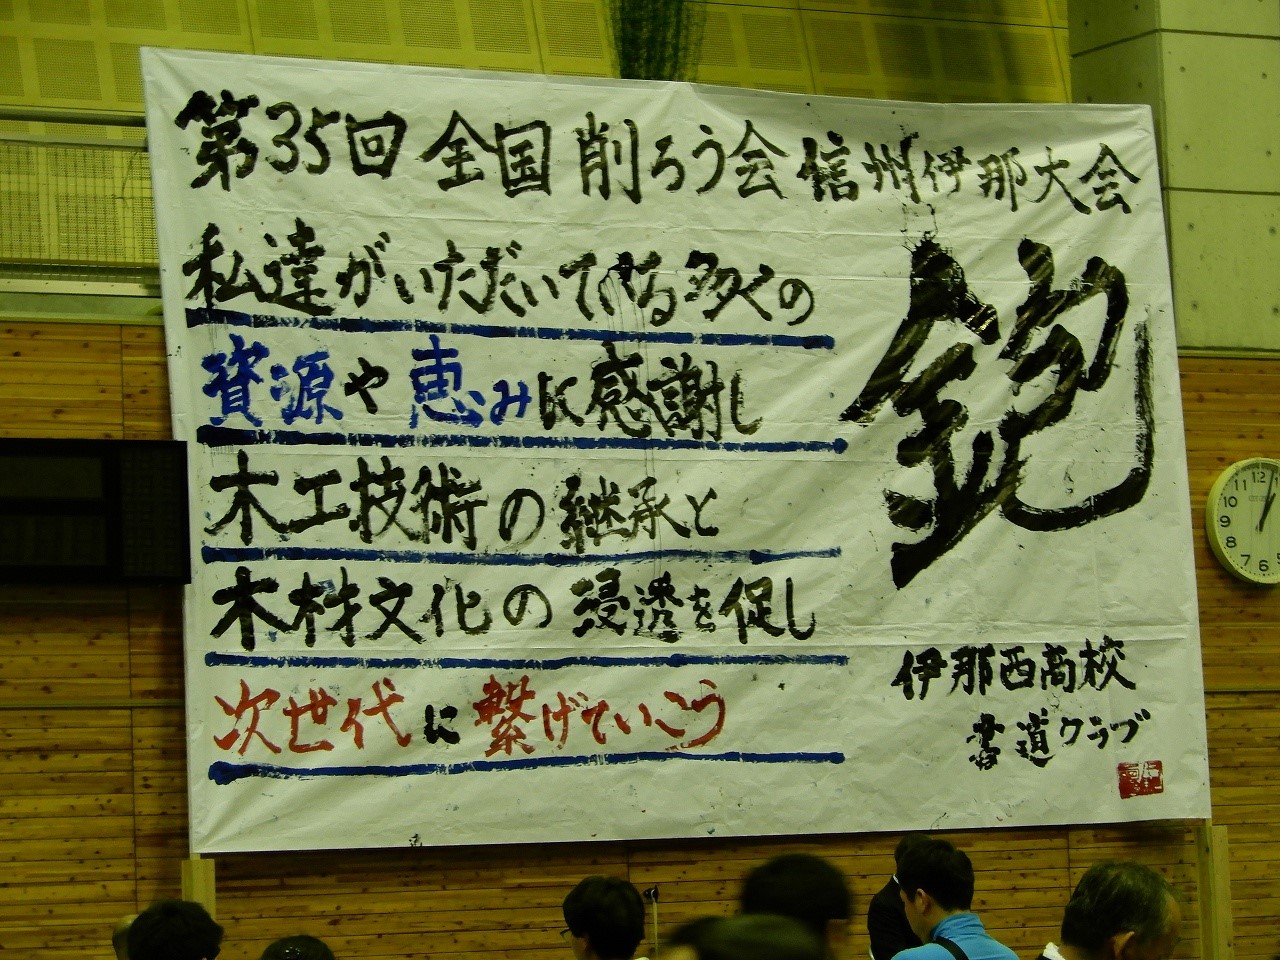 第35回 全国 削ろう会 信州伊那大会
私達がいただいている多くの
資源や 恵みに感謝し
木工技術の継承と
木材文化の 浸透を促し
次世代に繋げていこう
鉋
伊那西高校
書道クラブ